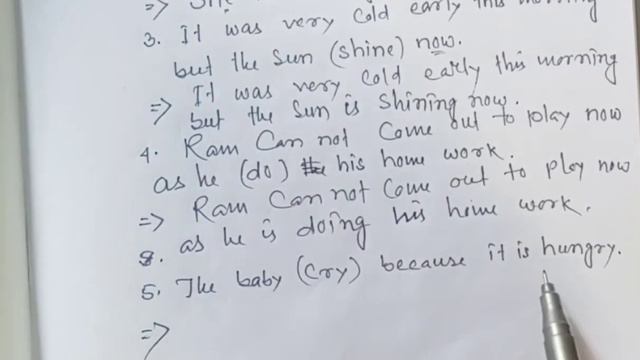 => She
3. It was very cold early this morning
but the sun (shine) now.
=> It was very cold early this morning
but the sun is shining now.
4. Ram can not come out to play now
as he (do) his home work.
=> Ram can not come out to play now
as he is doing his home work.
5. The baby (cry) because it is hungry.
=>